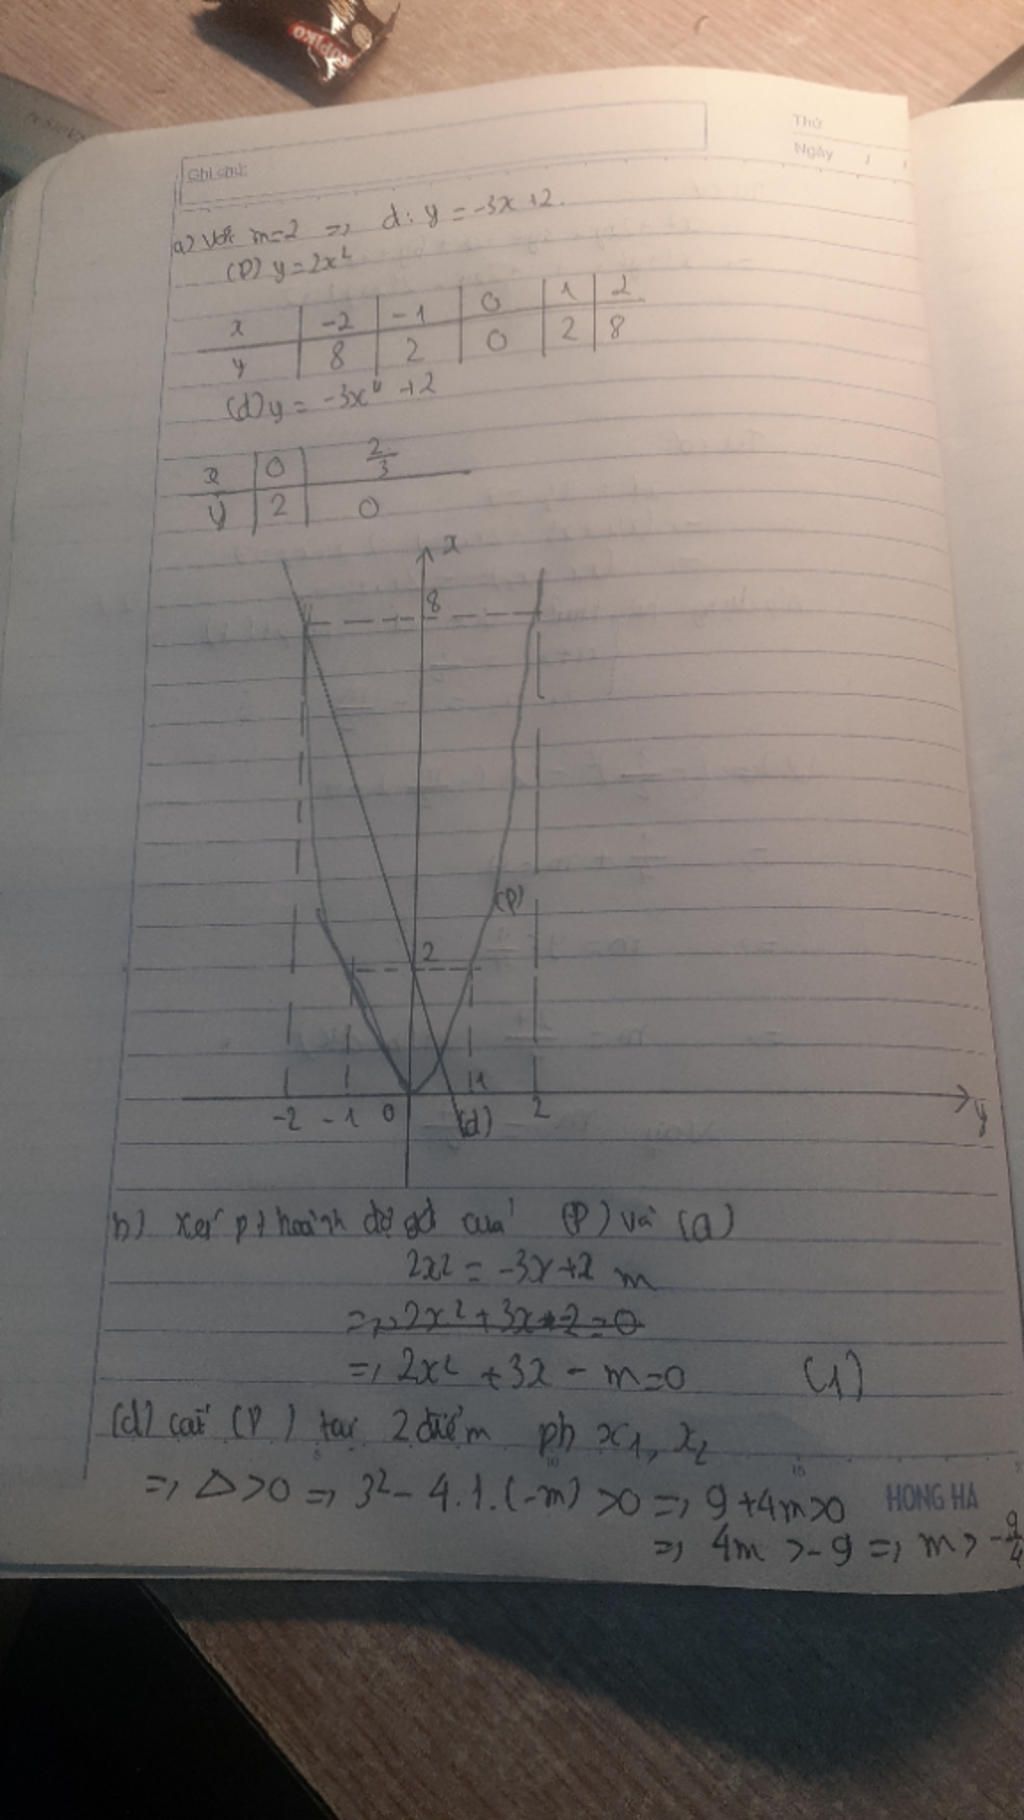 KOPIKO
Thứ
Ngày
Ghi chú:
a) Với m=2 => d: y = -3x+2.
(P) y = 2x²
x -2 -1 0 1 2
y 8 2 0 2 8
(d) y = -3x +2
x 0 2/3
y 2 0
x
8
(P)
2
-2 -1 0 1 2 y
(d)
b) Xét pt hoành độ gđ của (P) và (d)
2x² = -3x+2 m
=> 2x² + 3x - 2 = 0
=> 2x² + 3x - m = 0 (1)
(d) cắt (P) tại 2 điểm pb x₁, x₂
=> Δ>0 => 3² - 4.1.(-m) >0 => 9+4m>0
HONG HA
=> 4m > -9 => m > -9/4